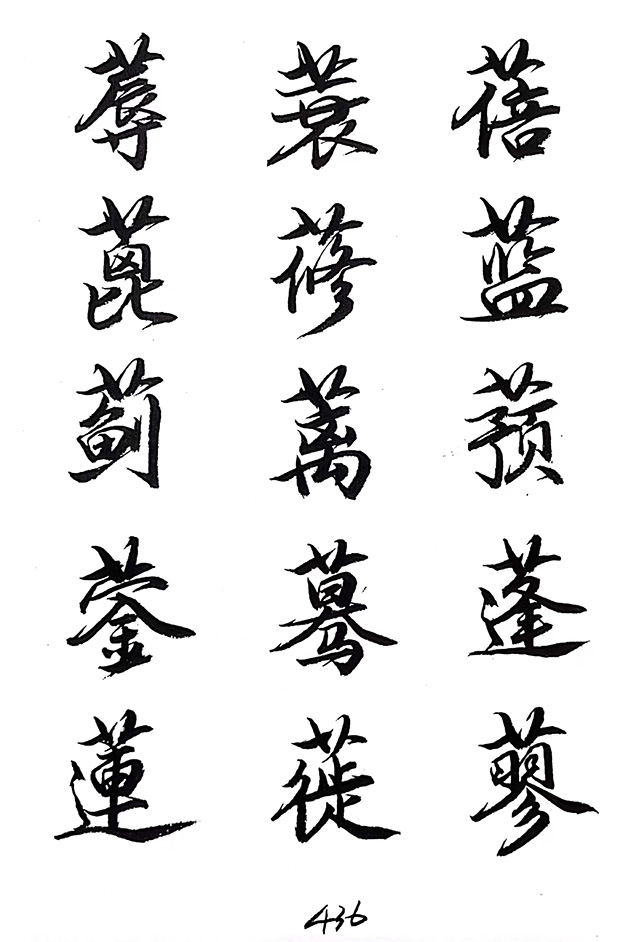 蓐 蓑 蓓
蓖 蓚 蓝
蓟 蓠 蓣
蓥 蓦 蓬
蓮 蓰 蓼
436